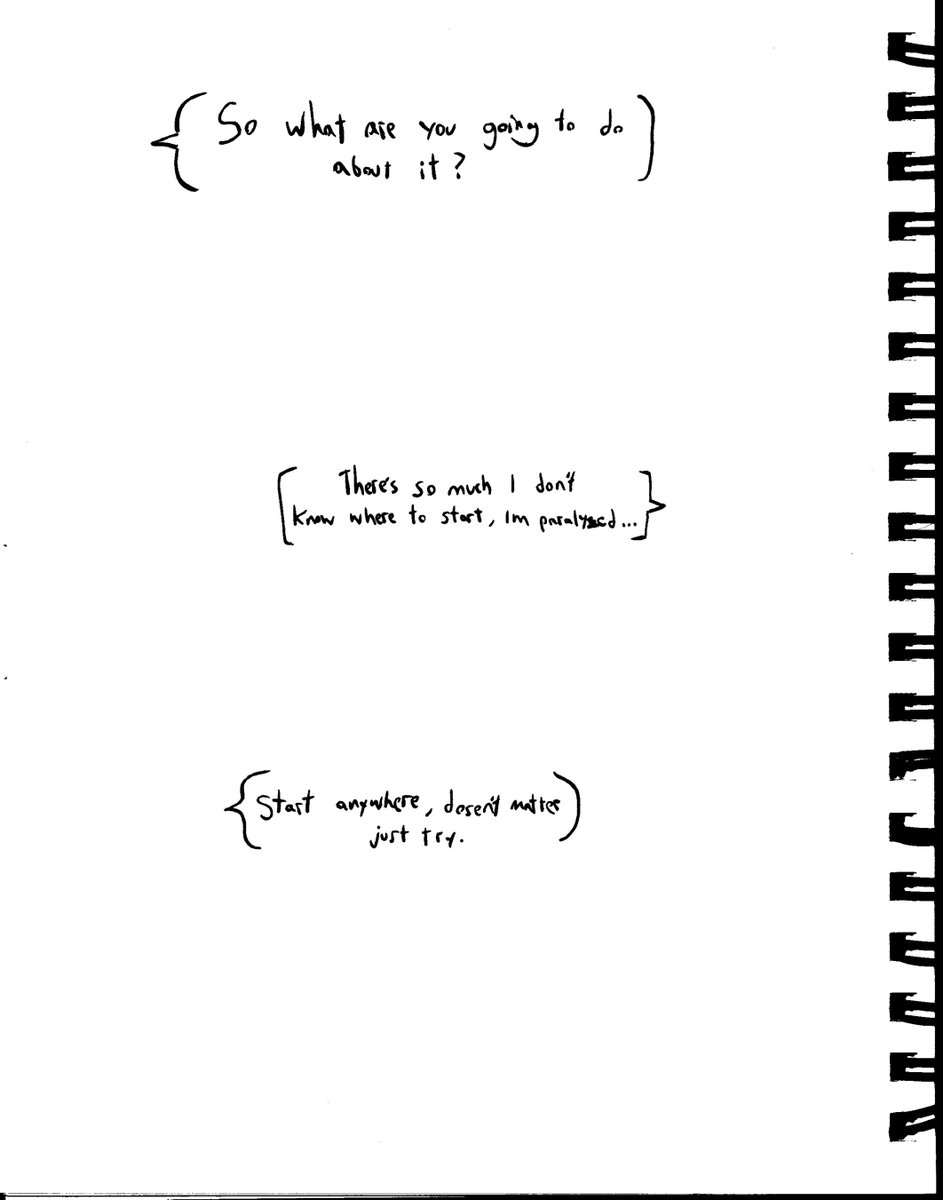 So what are you going to do
about it?
There's so much I don't
know where to start, Im paralyzed...
Start anywhere, doesen't matter
just try.